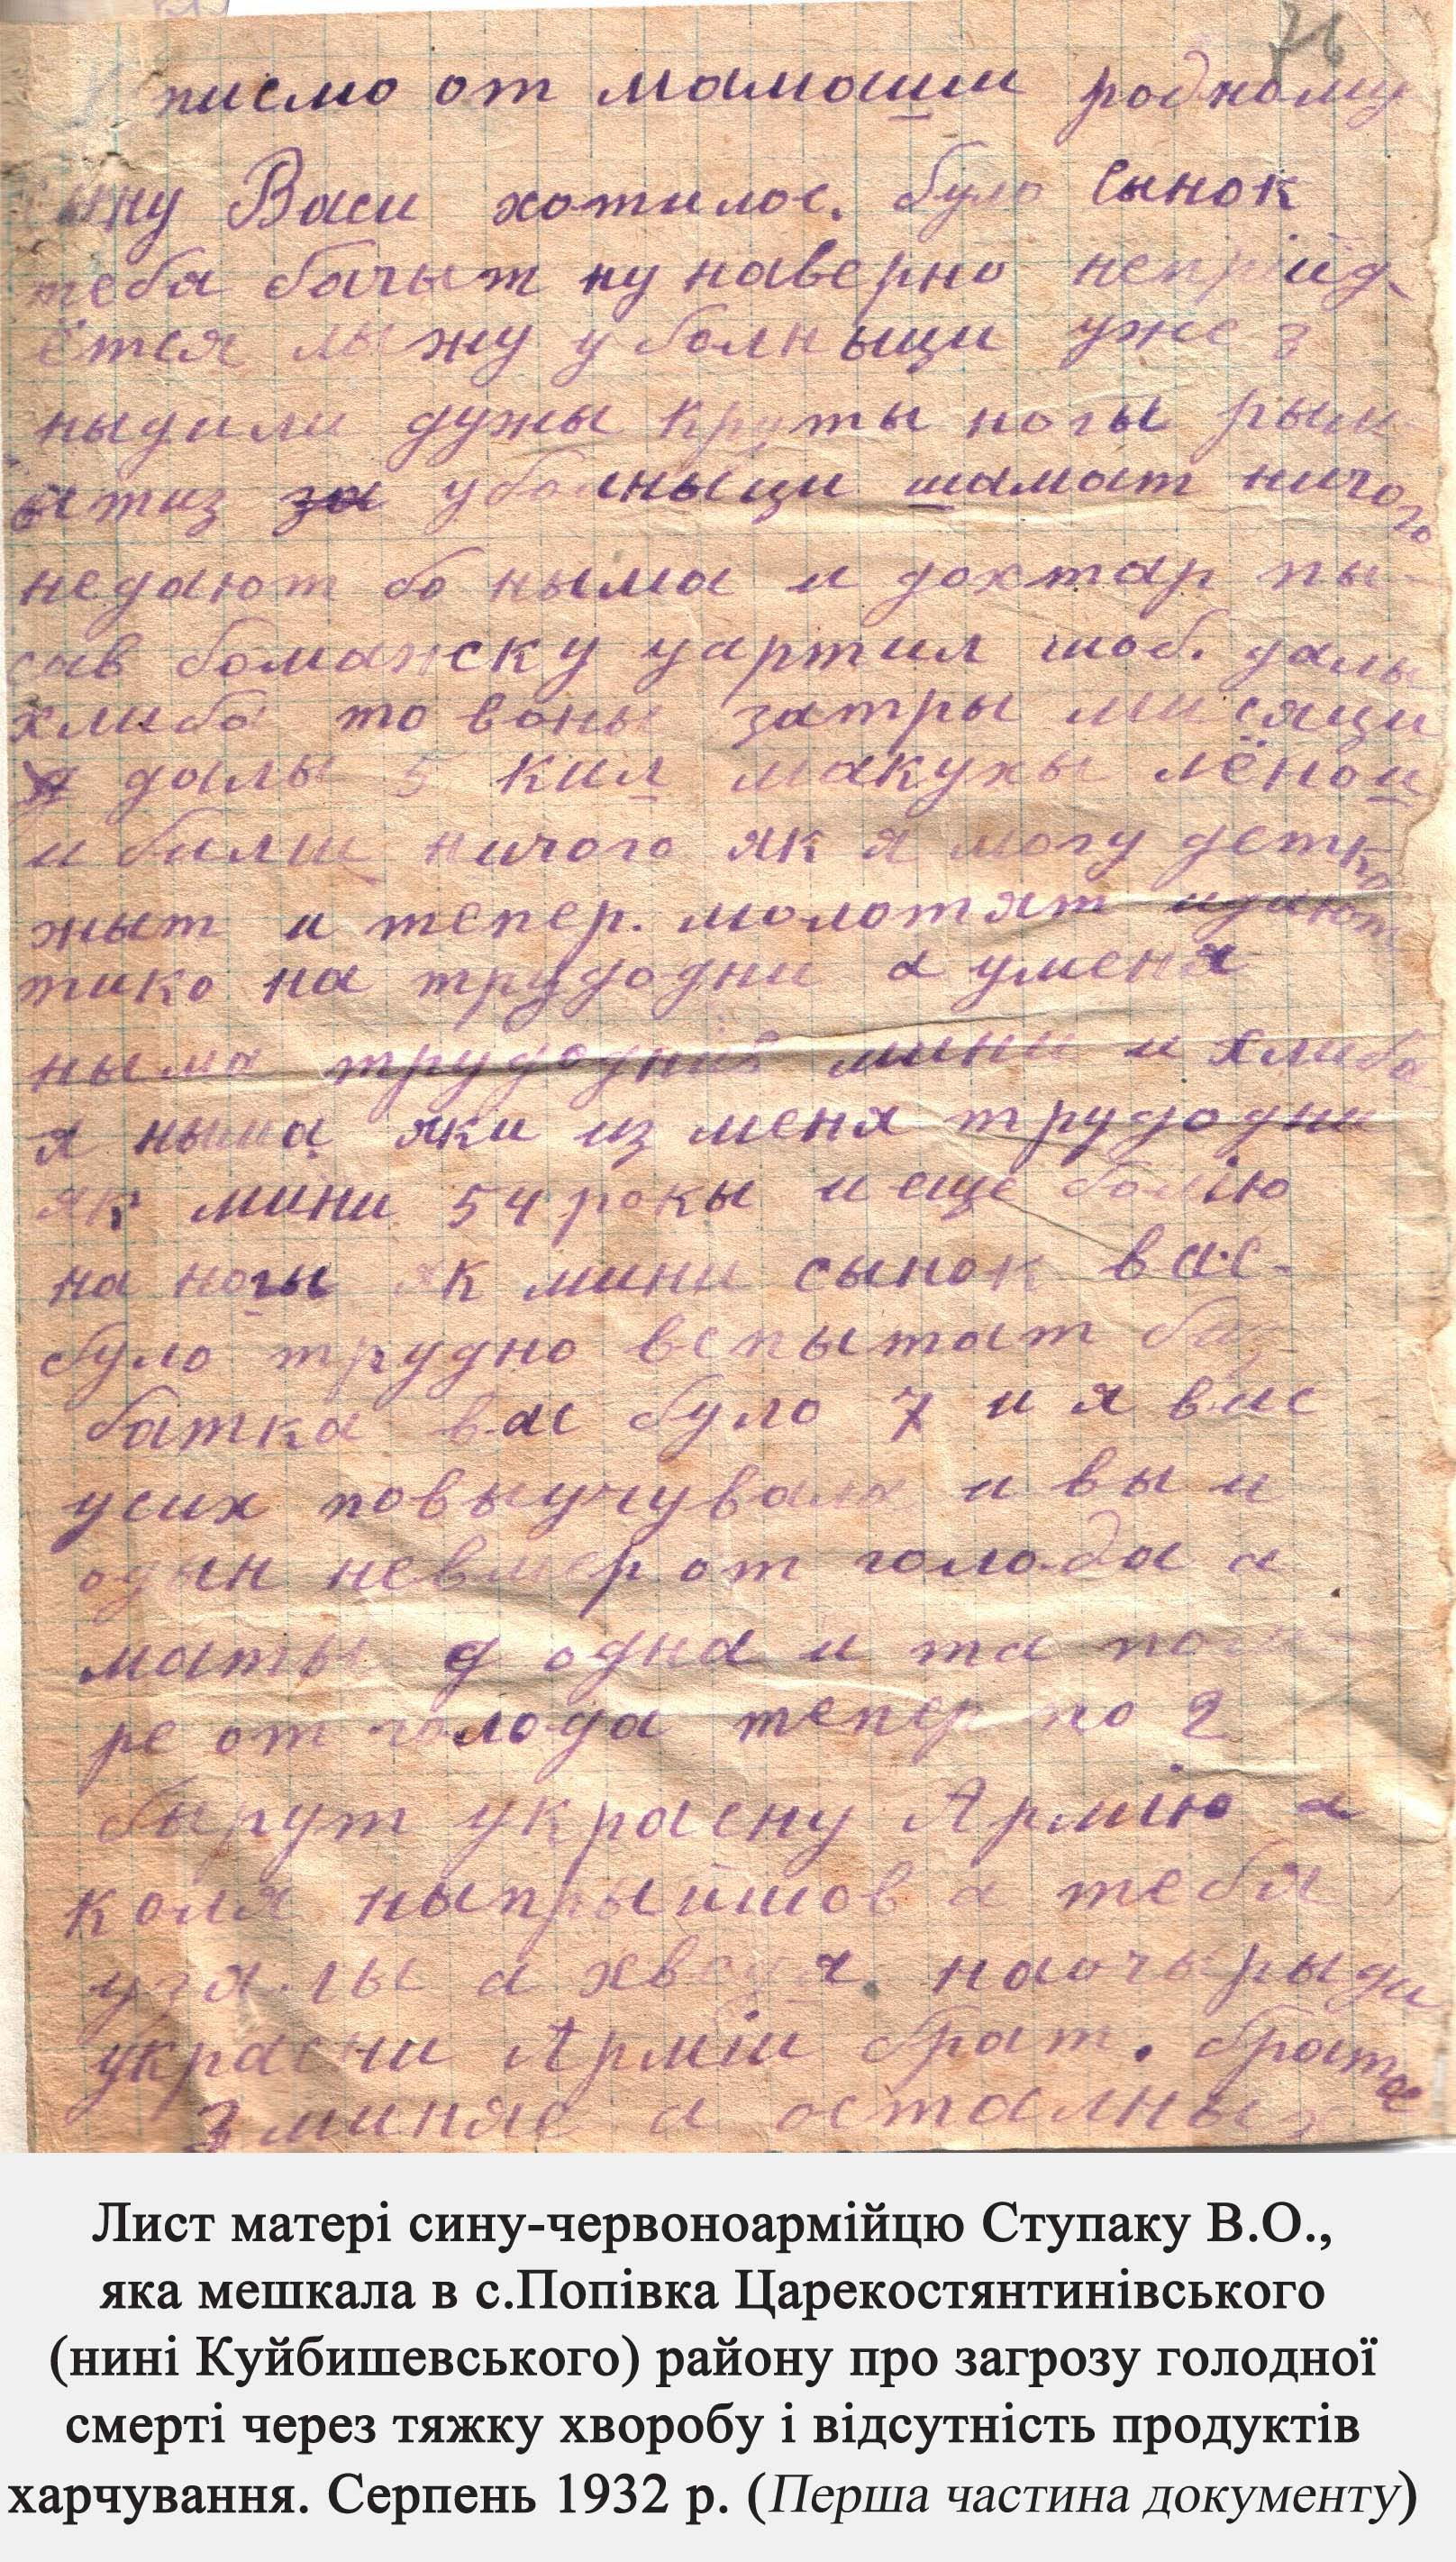 76
писмо от мамаши родному
сыну Васи хотилос. було Сынок
теба бачыт ну наверно непрійд
ётся лыжу у болныци уже 3
ныдили дужы круты ногы рым
атиз за уболныци шамат ничого
недают бо ныма и дохтар пы-
сав бомажку уартил шоб. далы
хлиба то воны затры мисяци
далы 5 кил макухы лёнои
и билш ничого як я могу детка
жыт и тепер. молотят идают
тико на трудодни а уменя
ныма трудодней мини и хлиба
я ныма яки из меня трудодни
як мини 54 рокы и еще болію
на ногы як мини сынок вас-
було трудно вспытат без
батка вас було 7 и я вас
усих повыучувала и вы и
одын невмер от голода а
маты одна и та поми-
ре от голода тепер по 2
бырут украсну Армію а
коля ныпрыйшов а тебя
узялы а наочырыди
украсни Арміи брат. брата
зминяе а осталных
Лист матері сину-червоноармійцю Ступаку В.О.,
яка мешкала в с.Попівка Царекостянтинівського
(нині Куйбишевського) району про загрозу голодної
смерті через тяжку хворобу і відсутність продуктів
харчування. Серпень 1932 р. (Перша частина документу)